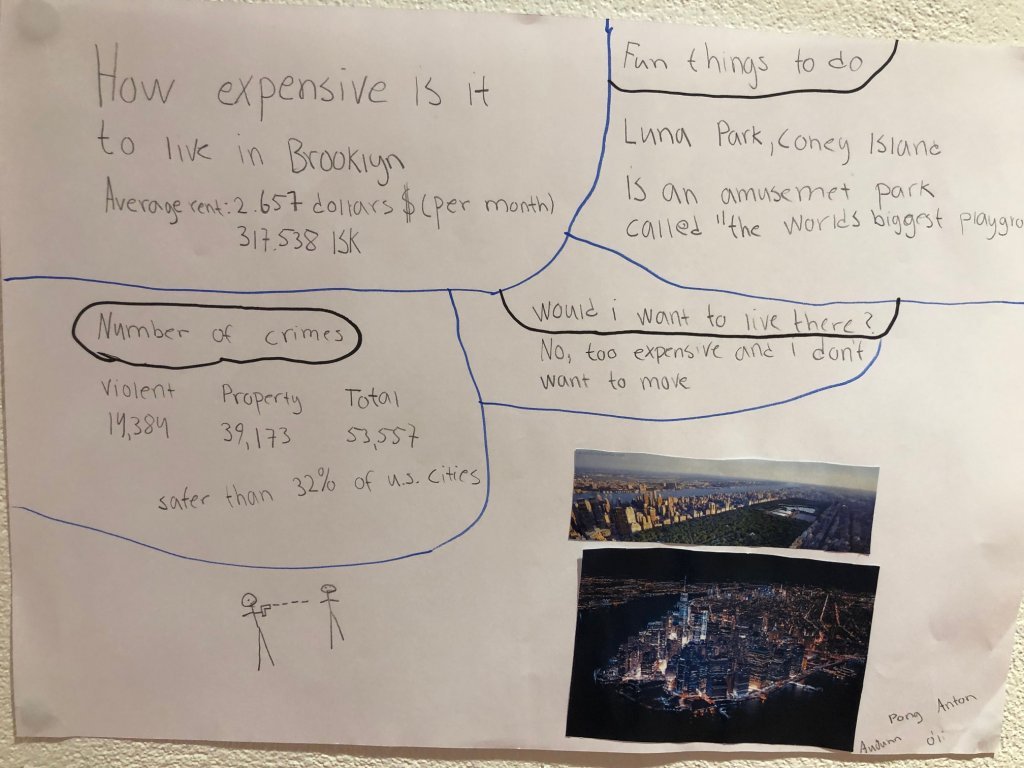 How expensive is it
to live in Brooklyn
Average rent: 2.657 dollars $ (per month)
317.538 ISK
Fun things to do
Luna Park, Coney Island
is an amusemet park
called "the worlds biggest playgro
Number of crimes
Violent Property Total
14,384 39,173 53,557
safer than 32% of u.s. cities
Would i want to live there?
No, too expensive and i don't
want to move
Anton